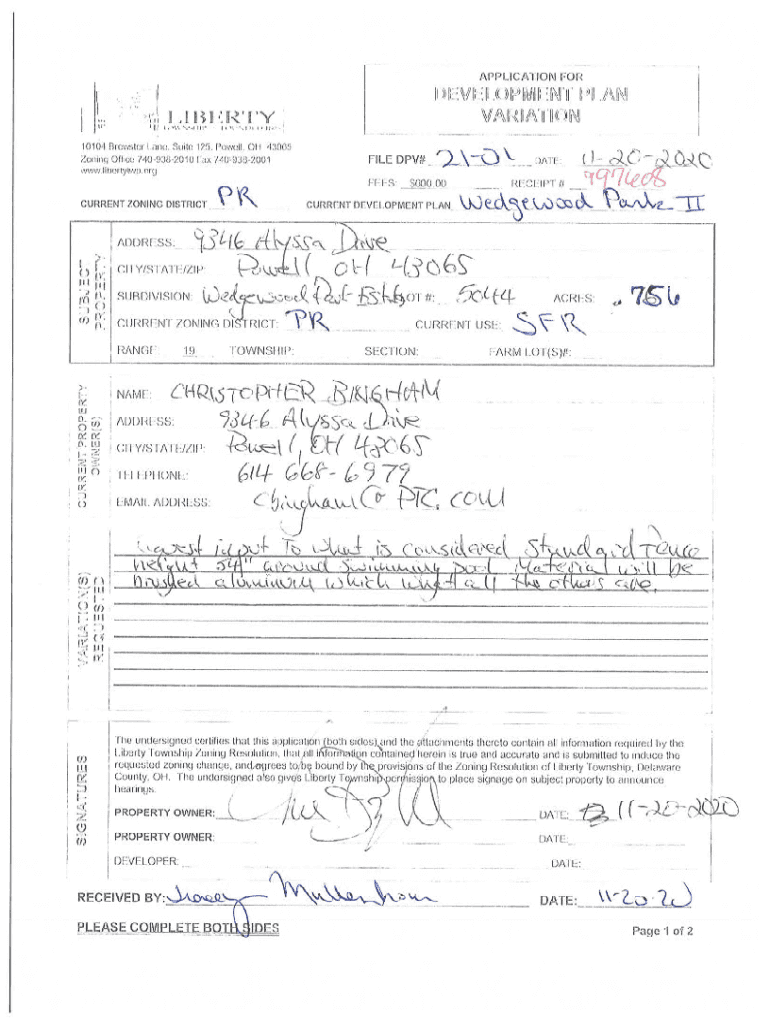 APPLICATION FOR
DEVELOPMENT PLAN
VARIATION
LIBERTY
TOWNSHIP
10104 Brewster Lane, Suite 125, Powell, OH 43065
Zoning Office 740-938-2010 Fax 740-938-2001
www.libertytwp.org
FILE DPV# 21-01 DATE: 11-20-2020
FEES: $000.00 RECEIPT # 997608
CURRENT ZONING DISTRICT PR CURRENT DEVELOPMENT PLAN Wedgewood Park II
SUBJECT
PROPERTY
ADDRESS: 9346 Alyssa Drive
CITY/STATE/ZIP: Powell, OH 43065
SUBDIVISION: Wedgewood Park LOT #: 5044 ACRES: .756
CURRENT ZONING DISTRICT: PR CURRENT USE: SFR
RANGE: 19 TOWNSHIP: SECTION: FARM LOT(S)#:
CURRENT PROPERTY
OWNER(S)
NAME: CHRISTOPHER BINGHAM
ADDRESS: 9346 Alyssa Drive
CITY/STATE/ZIP: Powell, OH 43065
TELEPHONE: 614 668-6979
EMAIL ADDRESS: cbingham@PTC.COM
VARIATION(S)
REQUESTED
to what is considered standard fence
height 54" around swimming pool Material will be
brushed aluminum which all the others are.
SIGNATURES
The undersigned certifies that this application (both sides) and the attachments thereto contain all information required by the
Liberty Township Zoning Resolution, that all information contained herein is true and accurate and is submitted to induce the
requested zoning change, and agrees to be bound by the provisions of the Zoning Resolution of Liberty Township, Delaware
County, OH. The undersigned also gives Liberty Township permission to place signage on subject property to announce
hearings.
PROPERTY OWNER: DATE: 11-20-2020
PROPERTY OWNER: DATE:
DEVELOPER: DATE:
RECEIVED BY: Tracey Mullenhour DATE: 11-20-20
PLEASE COMPLETE BOTH SIDES Page 1 of 2